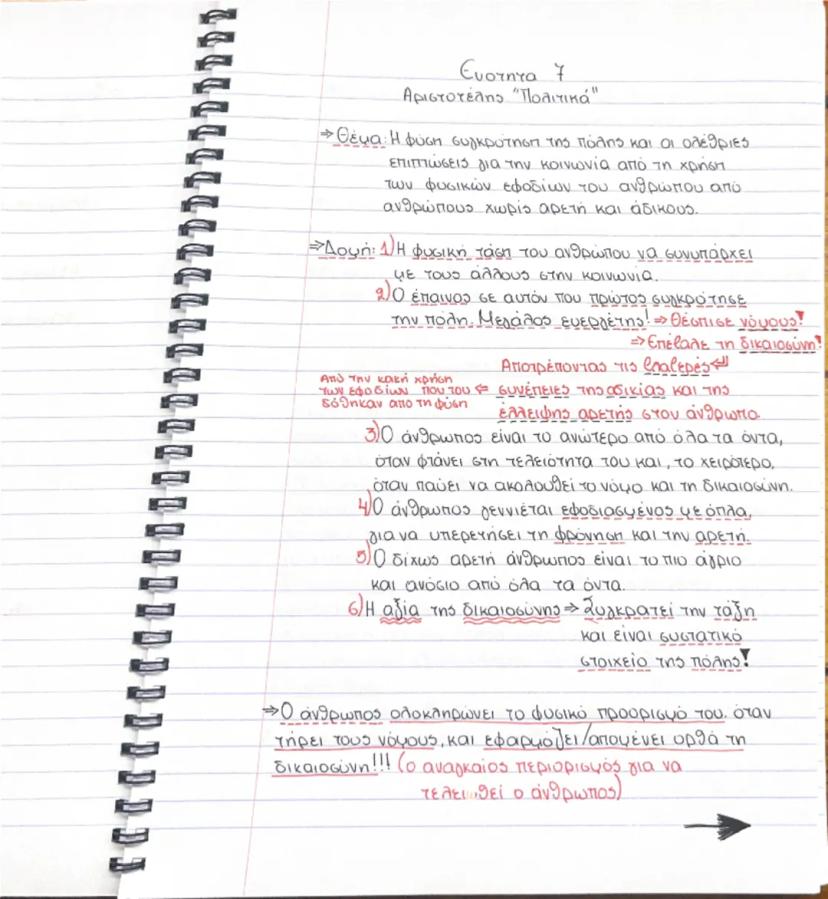 Ενότητα 7
Αριστοτέλης "Πολιτικά"
⇒Θέμα: Η φύση συγκρότηση της πόλης και οι ολέθριες
επιπτώσεις για την κοινωνία από τη χρήση
των φυσικών εφοδίων του ανθρώπου από
ανθρώπους χωρίς αρετή και άδικους.
⇒Δομή: 1) Η φυσική τάση του ανθρώπου να συνυπάρχει
με τους άλλους στην κοινωνία.
2) Ο έπαινος σε αυτόν που πρώτος συγκρότησε
την πόλη. Μεγάλος ευεργέτης! ⇒ Θέσπισε νόμους!
⇒ Επέβαλε τη δικαιοσύνη!
Αποτρέποντας τις βλαβερές ↵
Από την κακή χρήση
των εφοδίων που του ⇐ συνέπειες της αδικίας και της
δόθηκαν από τη φύση
έλλειψης αρετής στον άνθρωπο.
3) Ο άνθρωπος είναι το ανώτερο από όλα τα όντα,
όταν φτάνει στη τελειότητα του και, το χειρότερο,
όταν παύει να ακολουθεί το νόμο και τη δικαιοσύνη.
4) Ο άνθρωπος γεννιέται εφοδιασμένος με όπλα,
για να υπερετήσει τη φρόνηση και την αρετή.
5) Ο δίχως αρετή άνθρωπος είναι το πιο άγριο
και ανόσιο από όλα τα όντα.
6) Η αξία της δικαιοσύνης ⇒ Συγκρατεί την τάξη
και είναι συστατικό
στοιχείο της πόλης!
⇒Ο άνθρωπος ολοκληρώνει το φυσικό προορισμό του. όταν
τήρει τους νόμους, και εφαρμόζει/απομένει ορθά τη
δικαιοσύνη!!! (ο αναγκαίος περιορισμός για να
τελειωθεί ο άνθρωπος)